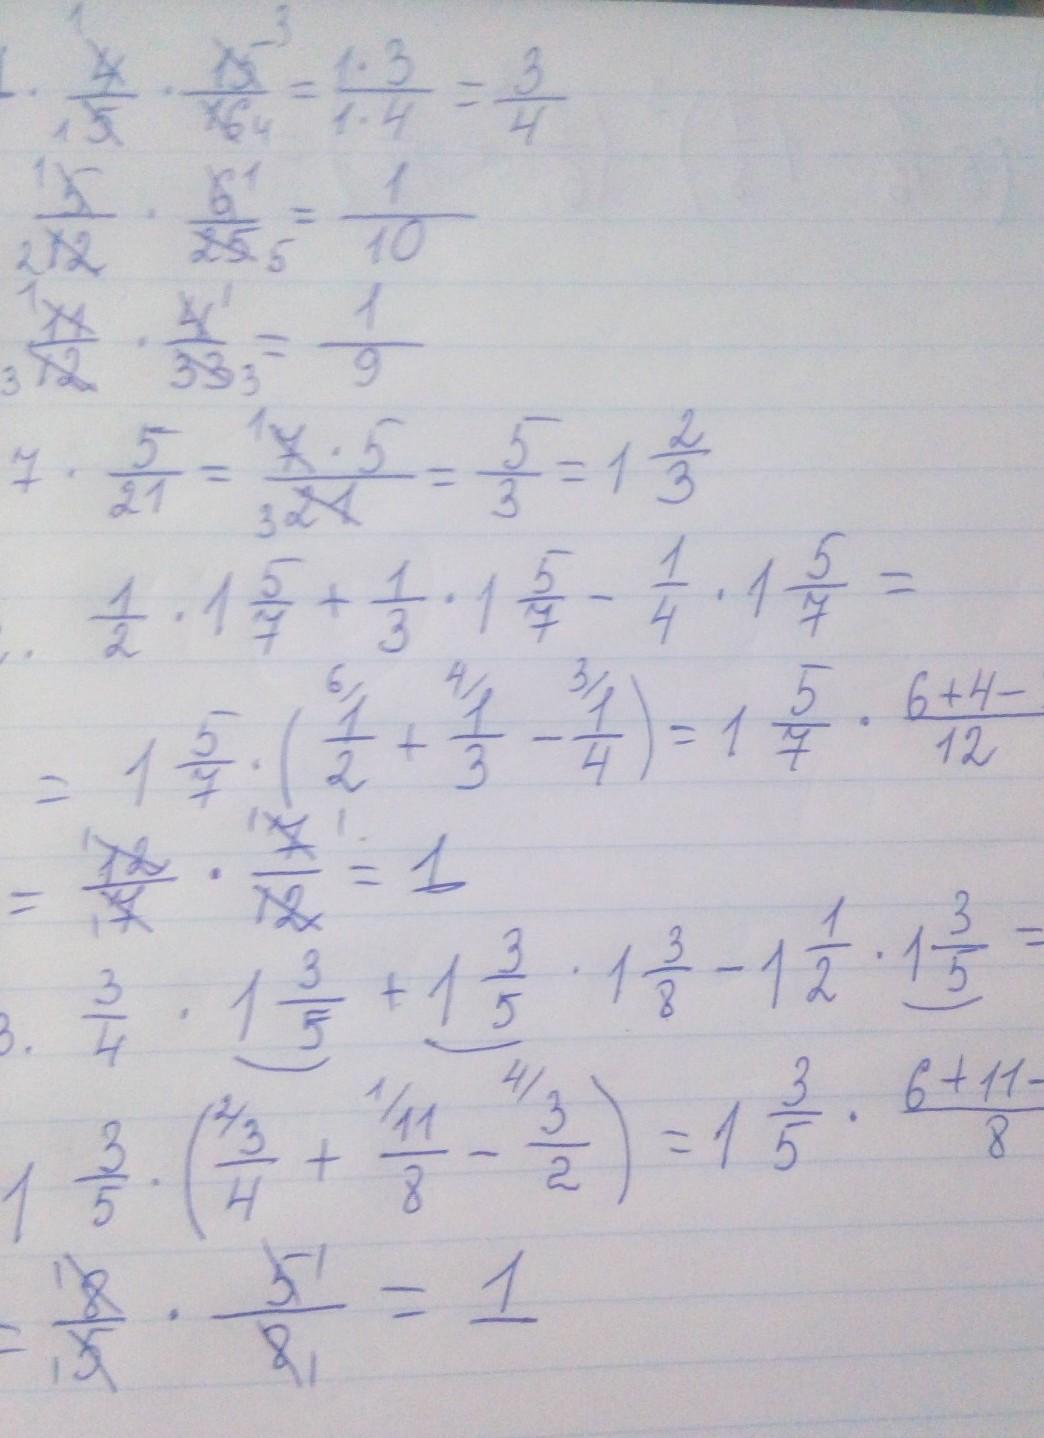 1. 4/5 · 15/16 = 1·3/1·4 = 3/4
5/12 · 6/25 = 1/10
11/12 · 4/33 = 1/9
7 · 5/21 = 7·5/21 = 5/3 = 1 2/3
1/2 · 1 5/7 + 1/3 · 1 5/7 - 1/4 · 1 5/7 =
= 1 5/7 · (1/2 + 1/3 - 1/4) = 1 5/7 · 6+4-/12
= 12/7 · 7/12 = 1
3. 3/4 · 1 3/5 + 1 3/5 · 1 3/8 - 1 1/2 · 1 3/5 =
1 3/5 · (3/4 + 11/8 - 3/2) = 1 3/5 · 6+11-/8
= 8/5 · 5/8 = 1